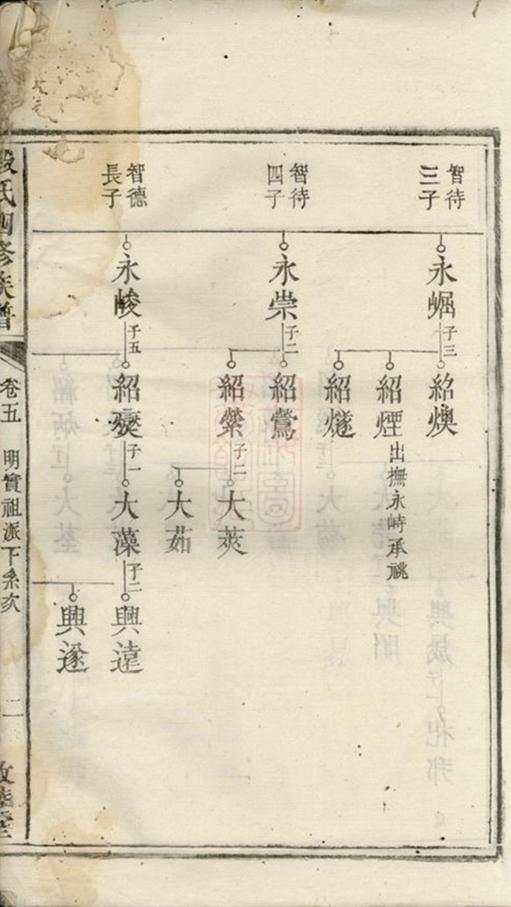 智待
三子
永崛
子三
紹燠
紹煙
出撫永峙承祧
紹燧
智待
四子
永崇
子二
紹鶯
紹縈
子二
大莢
大茹
智德
長子
永峻
子五
紹燮
子一
大藻
子二
興遠
興遂
氏四修族譜
卷五
明實祖派下系次
二